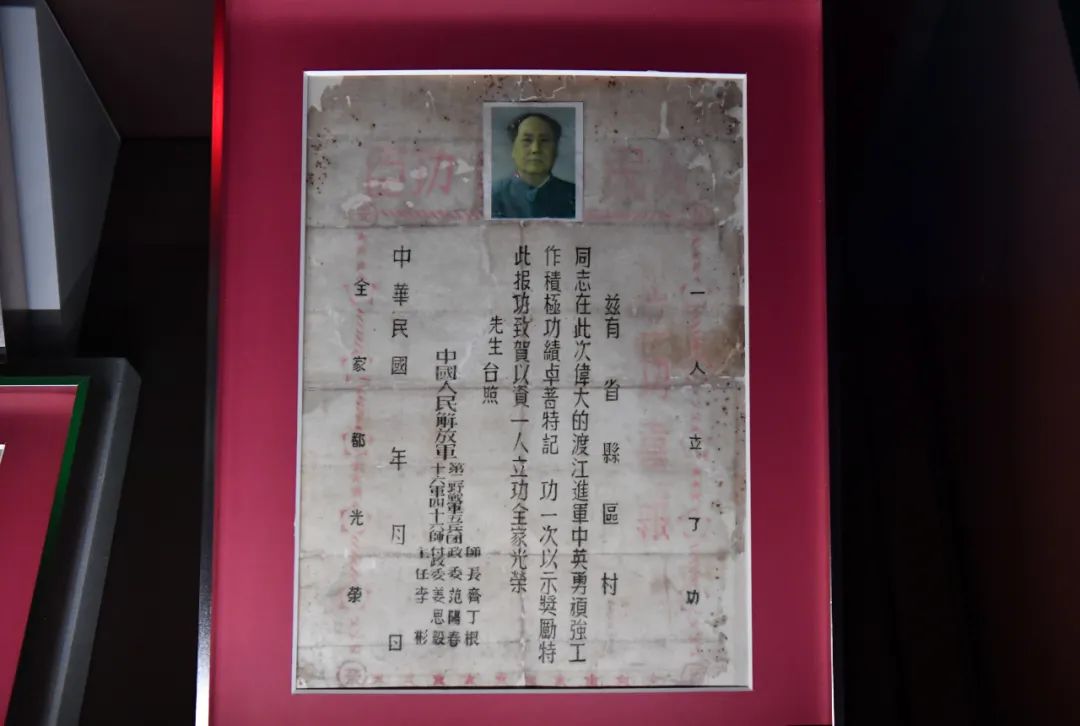 一人立了功
兹有 省 縣 區 村
同志在此次偉大的渡江進軍中英勇頑強工
作積極功績卓著特記 功一次以示獎勵特
此报功致賀以資一人立功全家光榮
先生台照
中國人民解放軍第二野戰軍五兵团十六軍四十六師
師長齊丁根
政委范陽春
付政委姜思毅
主任李彬
中華民國 年 月 日
全家都光榮